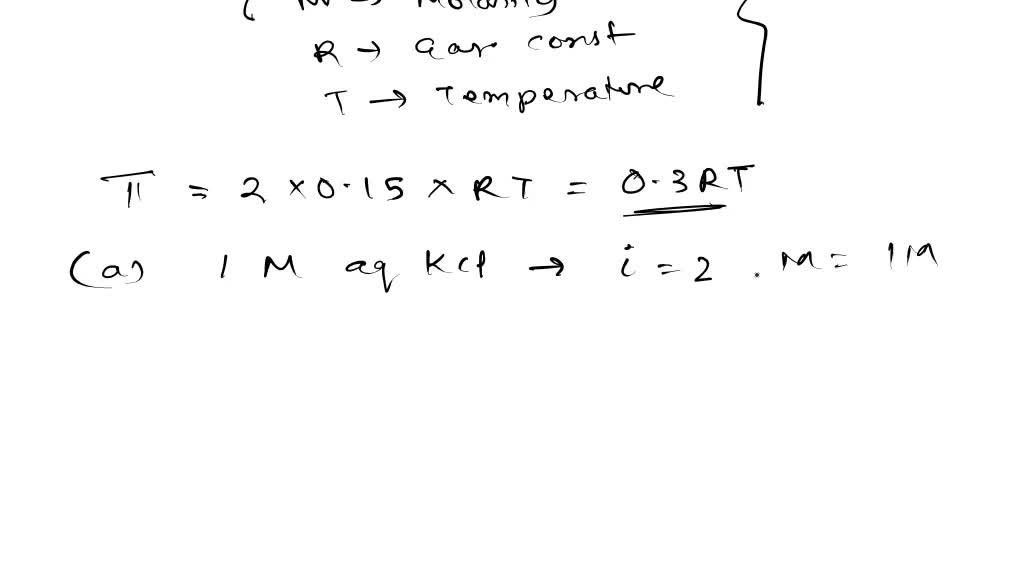 ( M → Molarity
R → Gas const
T → Temperature }
π = 2 × 0.15 × RT = 0.3RT
(a) 1 M aq KCl → i = 2 . M = 1M